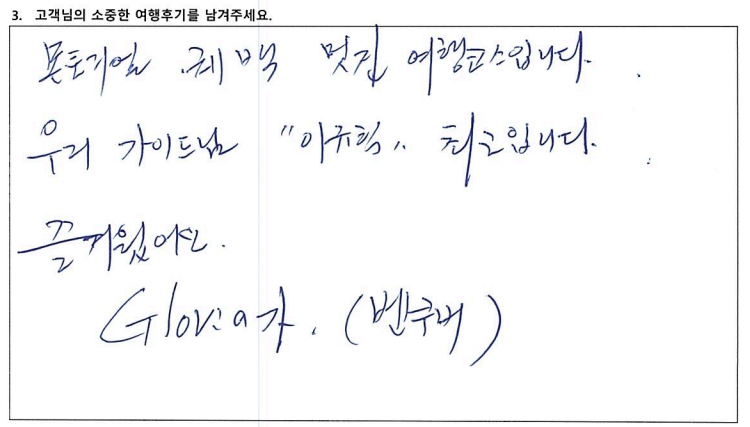 3. 고객님의 소중한 여행후기를 남겨주세요.
몬토리얼 퀘백 멋진 여행코스입니다.
우리 가이드님 "이규혁" 최고입니다.
즐거웠어요.
Gloria가. (벤쿠버)